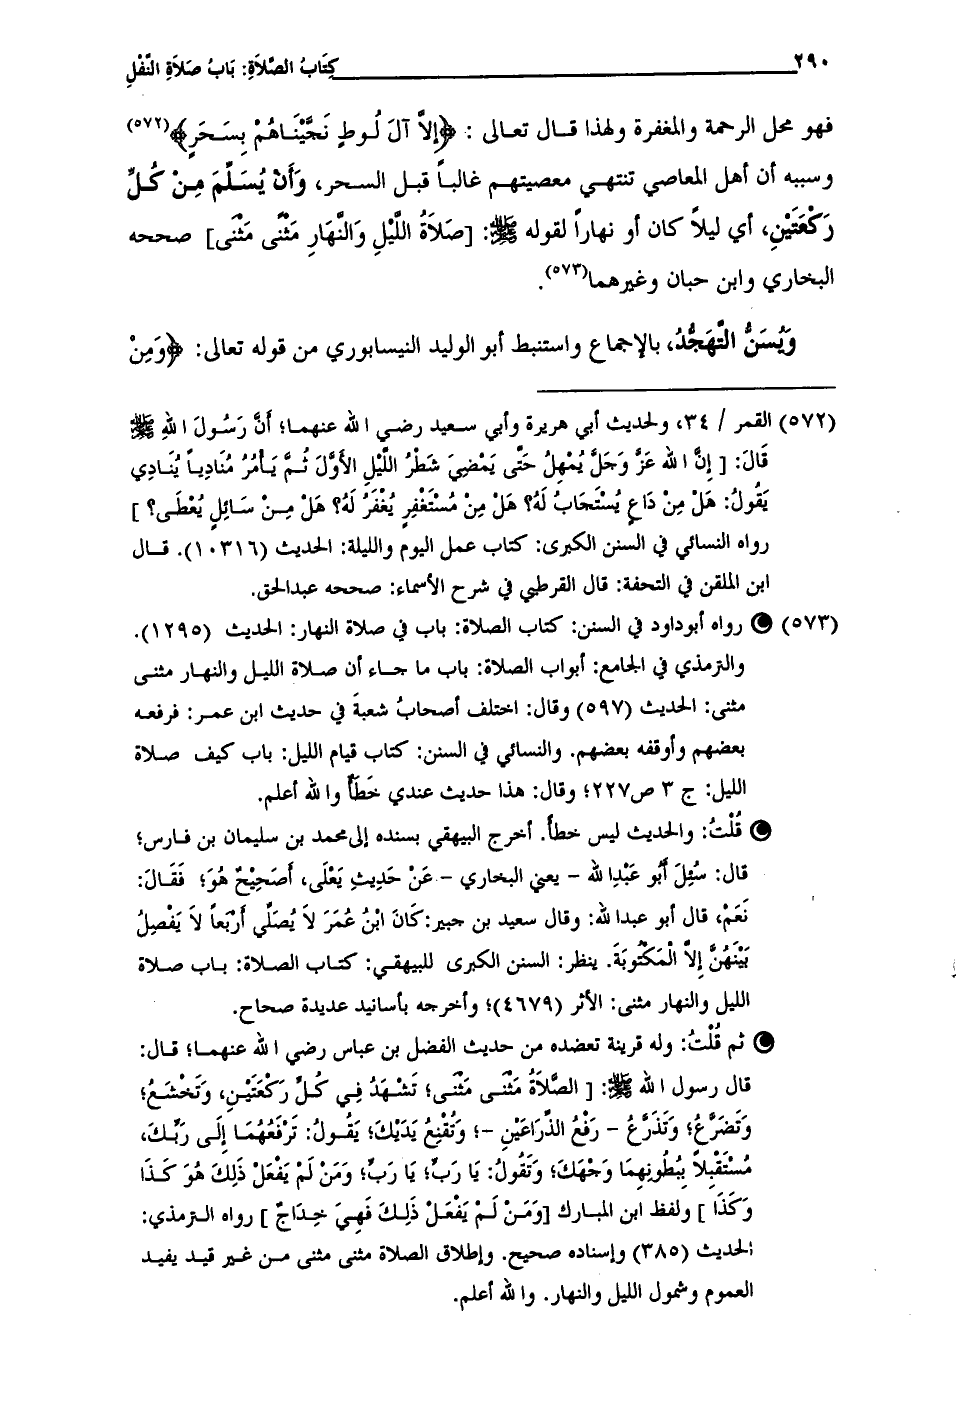 ٢٩٠ كِتَابُ الصَّلاَةِ: بَابُ صَلاَةِ النَّفْلِ
فهو محل الرحمة والمغفرة ولهذا قـال تعـالى : ﴿إِلاَّ آلَ لُـوطٍ نَجَّيْنَـاهُمْ بِسَـحَرٍ﴾(٥٧٢)
وسببه أن أهل المعاصي تنتهـي معصيتهـم غالبـاً قبـل السـحر، وَأَنْ يُسَـلِّمَ مِـنْ كُـلِّ
رَكْعَتَيْنِ، أي ليلاً كان أو نهاراً لقوله ﷺ: [صَلاَةُ اللَّيْلِ وَالنَّهَارِ مَثْنَى مَثْنَى] صححه
البخاري وابن حبان وغيرهما(٥٧٣).
وَيُسَنُّ التَّهَجُّدُ، بالإجماع واستنبط أبو الوليد النيسابوري من قوله تعالى: ﴿وَمِنْ
(٥٧٢) القمر / ٣٤، ولحديث أبي هريرة وأبي سعيد رضي الله عنهمـا؛ أَنَّ رَسُـولَ اللهِ ﷺ
قَالَ: [ إِنَّ اللهَ عَزَّ وَجَلَّ يُمْهِلُ حَتَّى يَمْضِيَ شَطْرُ اللَّيْلِ الأَوَّلَ ثُـمَّ يَـأْمُرُ مُنَادِيـاً يُنَـادِي
يَقُولُ: هَلْ مِنْ دَاعٍ يُسْتَجَابُ لَهُ؟ هَلْ مِنْ مُسْتَغْفِرٍ يُغْفَرُ لَهُ؟ هَلْ مِـنْ سَـائِلٍ يُعْطَـى؟ ]
رواه النسائي في السنن الكبرى: كتاب عمل اليوم والليلة: الحديث (١٠٣١٦). قـال
ابن الملقن في التحفة: قال القرطبي في شرح الأسماء: صححه عبدالحق.
(٥٧٣) رواه أبوداود في السنن: كتاب الصلاة: باب في صلاة النهار: الحديث (١٢٩٥).
والترمذي في الجامع: أبواب الصلاة: باب ما جـاء أن صـلاة الليـل والنهـار مثنـى
مثنى: الحديث (٥٩٧) وقال: اختلف أصحابُ شعبةَ في حديث ابن عمـر: فرفعـه
بعضهم وأوقفه بعضهم. والنسائي في السنن: كتاب قيام الليل: باب كيف صـلاة
الليل: ج ٣ ص٢٢٧؛ وقال: هذا حديث عندي خَطَأٌ والله أعلم.
قُلْتُ: والحديث ليس خطأً. أخرج البيهقي بسنده إلى محمد بن سليمان بن فـارس؛
قال: سُئِلَ أَبُو عَبْدِالله - يعني البخاري - عَنْ حَدِيثِ يَعْلَى، أَصَحِيْحٌ هُوَ؛ فَقَـالَ:
نَعَمْ، قال أبو عبدالله: وقال سعيد بن جبير:كَانَ ابْنُ عُمَرَ لاَ يُصَلِّي أَرْبَعاً لاَ يَفْصِلُ
بَيْنَهُنَّ إِلاَّ الْمَكْتُوبَةَ. ينظر: السنن الكبرى للبيهقـي: كتـاب الصـلاة: بـاب صـلاة
الليل والنهار مثنى: الأثر (٤٦٧٩)؛ وأخرجه بأسانيد عديدة صحاح.
ثم قُلْتُ: وله قرينة تعضده من حديث الفضل بن عباس رضي الله عنهمـا؛ قـال:
قال رسول الله ﷺ: [ الصَّلاَةُ مَثْنَـى مَثْنَـى؛ تَشْـهَدُ فِـي كُـلِّ رَكْعَتَيْـنِ، وَتَخْشَـعُ؛
وَتَضَرَّعُ؛ وَتَذَرَّعُ - رَفْعُ الذِّرَاعَيْنِ -؛ وَتُقْنِعُ يَدَيْكَ؛ يَقُـولُ: تَرْفَعُهُمَـا إِلَـى رَبِّـكَ،
مُسْتَقْبِلاً بِبُطُونِهِمَا وَجْهَكَ؛ وَتَقُولُ: يَا رَبِّ؛ يَا رَبِّ؛ وَمَنْ لَمْ يَفْعَلْ ذَلِكَ هُوَ كَـذَا
وَكَذَا ] ولفظ ابن المبارك [وَمَـنْ لَـمْ يَفْعَـلْ ذَلِـكَ فَهِـيَ خِـدَاجٌ ] رواه الـترمذي:
الحديث (٣٨٥) وإسناده صحيح. وإطلاق الصلاة مثنى مثنى مـن غـير قيـد يفيـد
العموم وشمول الليل والنهار. والله أعلم.